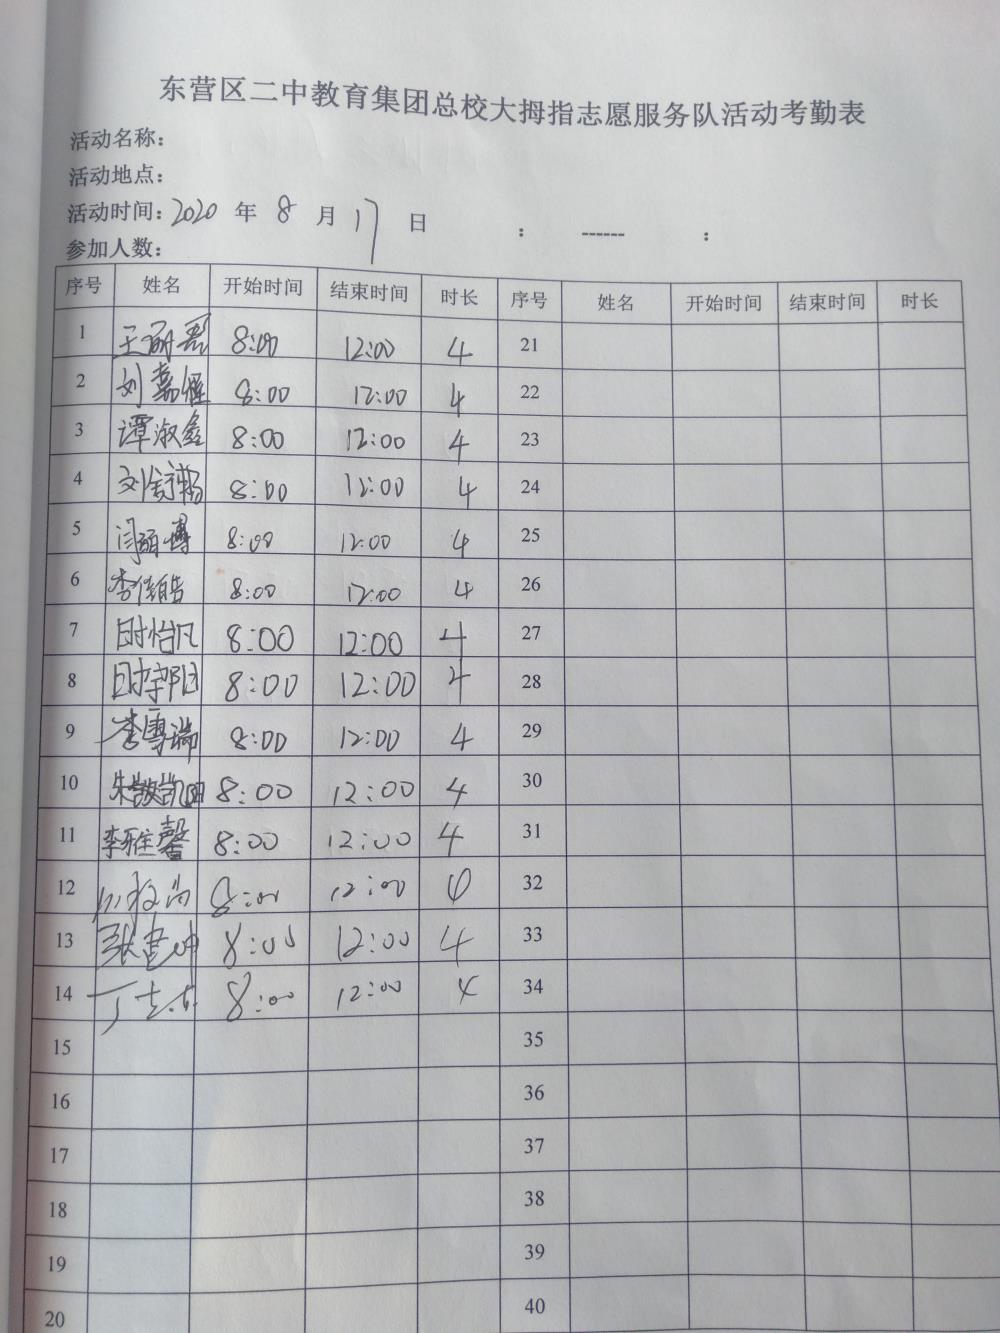 东营区二中教育集团总校大拇指志愿服务队活动考勤表
活动名称:
活动地点:
活动时间: 2020 年 8 月 17 日 : ------ :
参加人数:
序号 姓名 开始时间 结束时间 时长 序号 姓名 开始时间 结束时间 时长
1 8:00 12:00 4 21
2 刘嘉惺 8:00 12:00 4 22
3 谭淑鑫 8:00 12:00 4 23
4 8:00 12:00 4 24
5 8:00 12:00 4 25
6 李佳皓 8:00 12:00 4 26
7 时怡凡 8:00 12:00 4 27
8 时宇阳 8:00 12:00 4 28
9 李雪瑞 8:00 12:00 4 29
10 8:00 12:00 4 30
11 李雅馨 8:00 12:00 4 31
12 8:00 12:00 4 32
13 张建坤 8:00 12:00 4 33
14 8:00 12:00 4 34
15 35
16 36
17 37
18 38
19 39
20 40